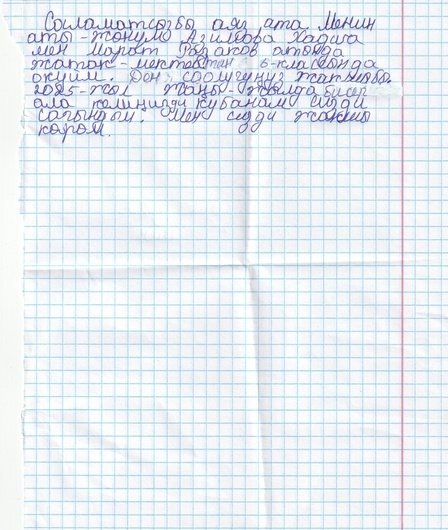 Соламатсызбы аяз ата Менин
аты-жонума Азизова Хадича
мен Марат Рызаков атында
жатак-мектептин 6-классында
окуйм. Ден соолугунуз жакшыбы
2025-жыл жаңы-жылда бизге
ала келиңизди кубанам сизди
сагындым. Мен сизди жакшы
кором.